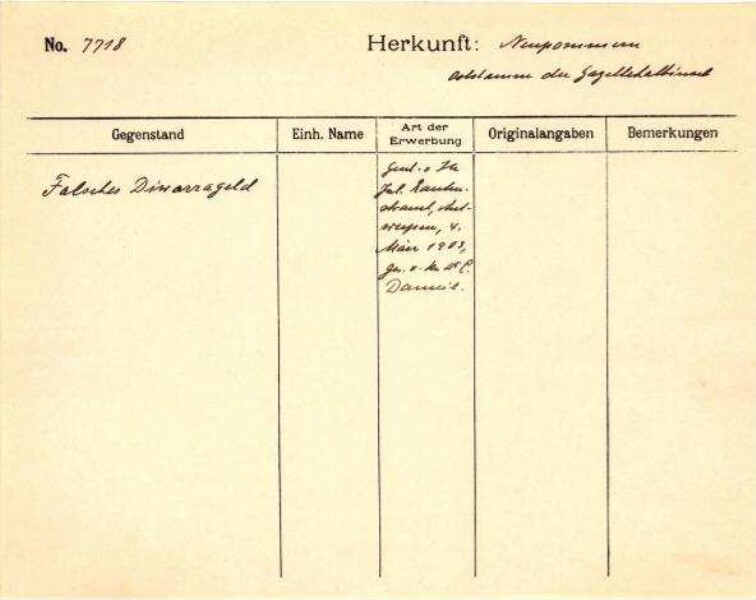 No. 7718
Herkunft: Neupommern
der Gazellehalbinsel
Gegenstand
Einh. Name
Art der
Erwerbung
Originalangaben
Bemerkungen
Falsches Diwarrageld
Jul. Rauten-
strauch, Ant-
werpen, 4.
März 1903,
ges. v.
Damm